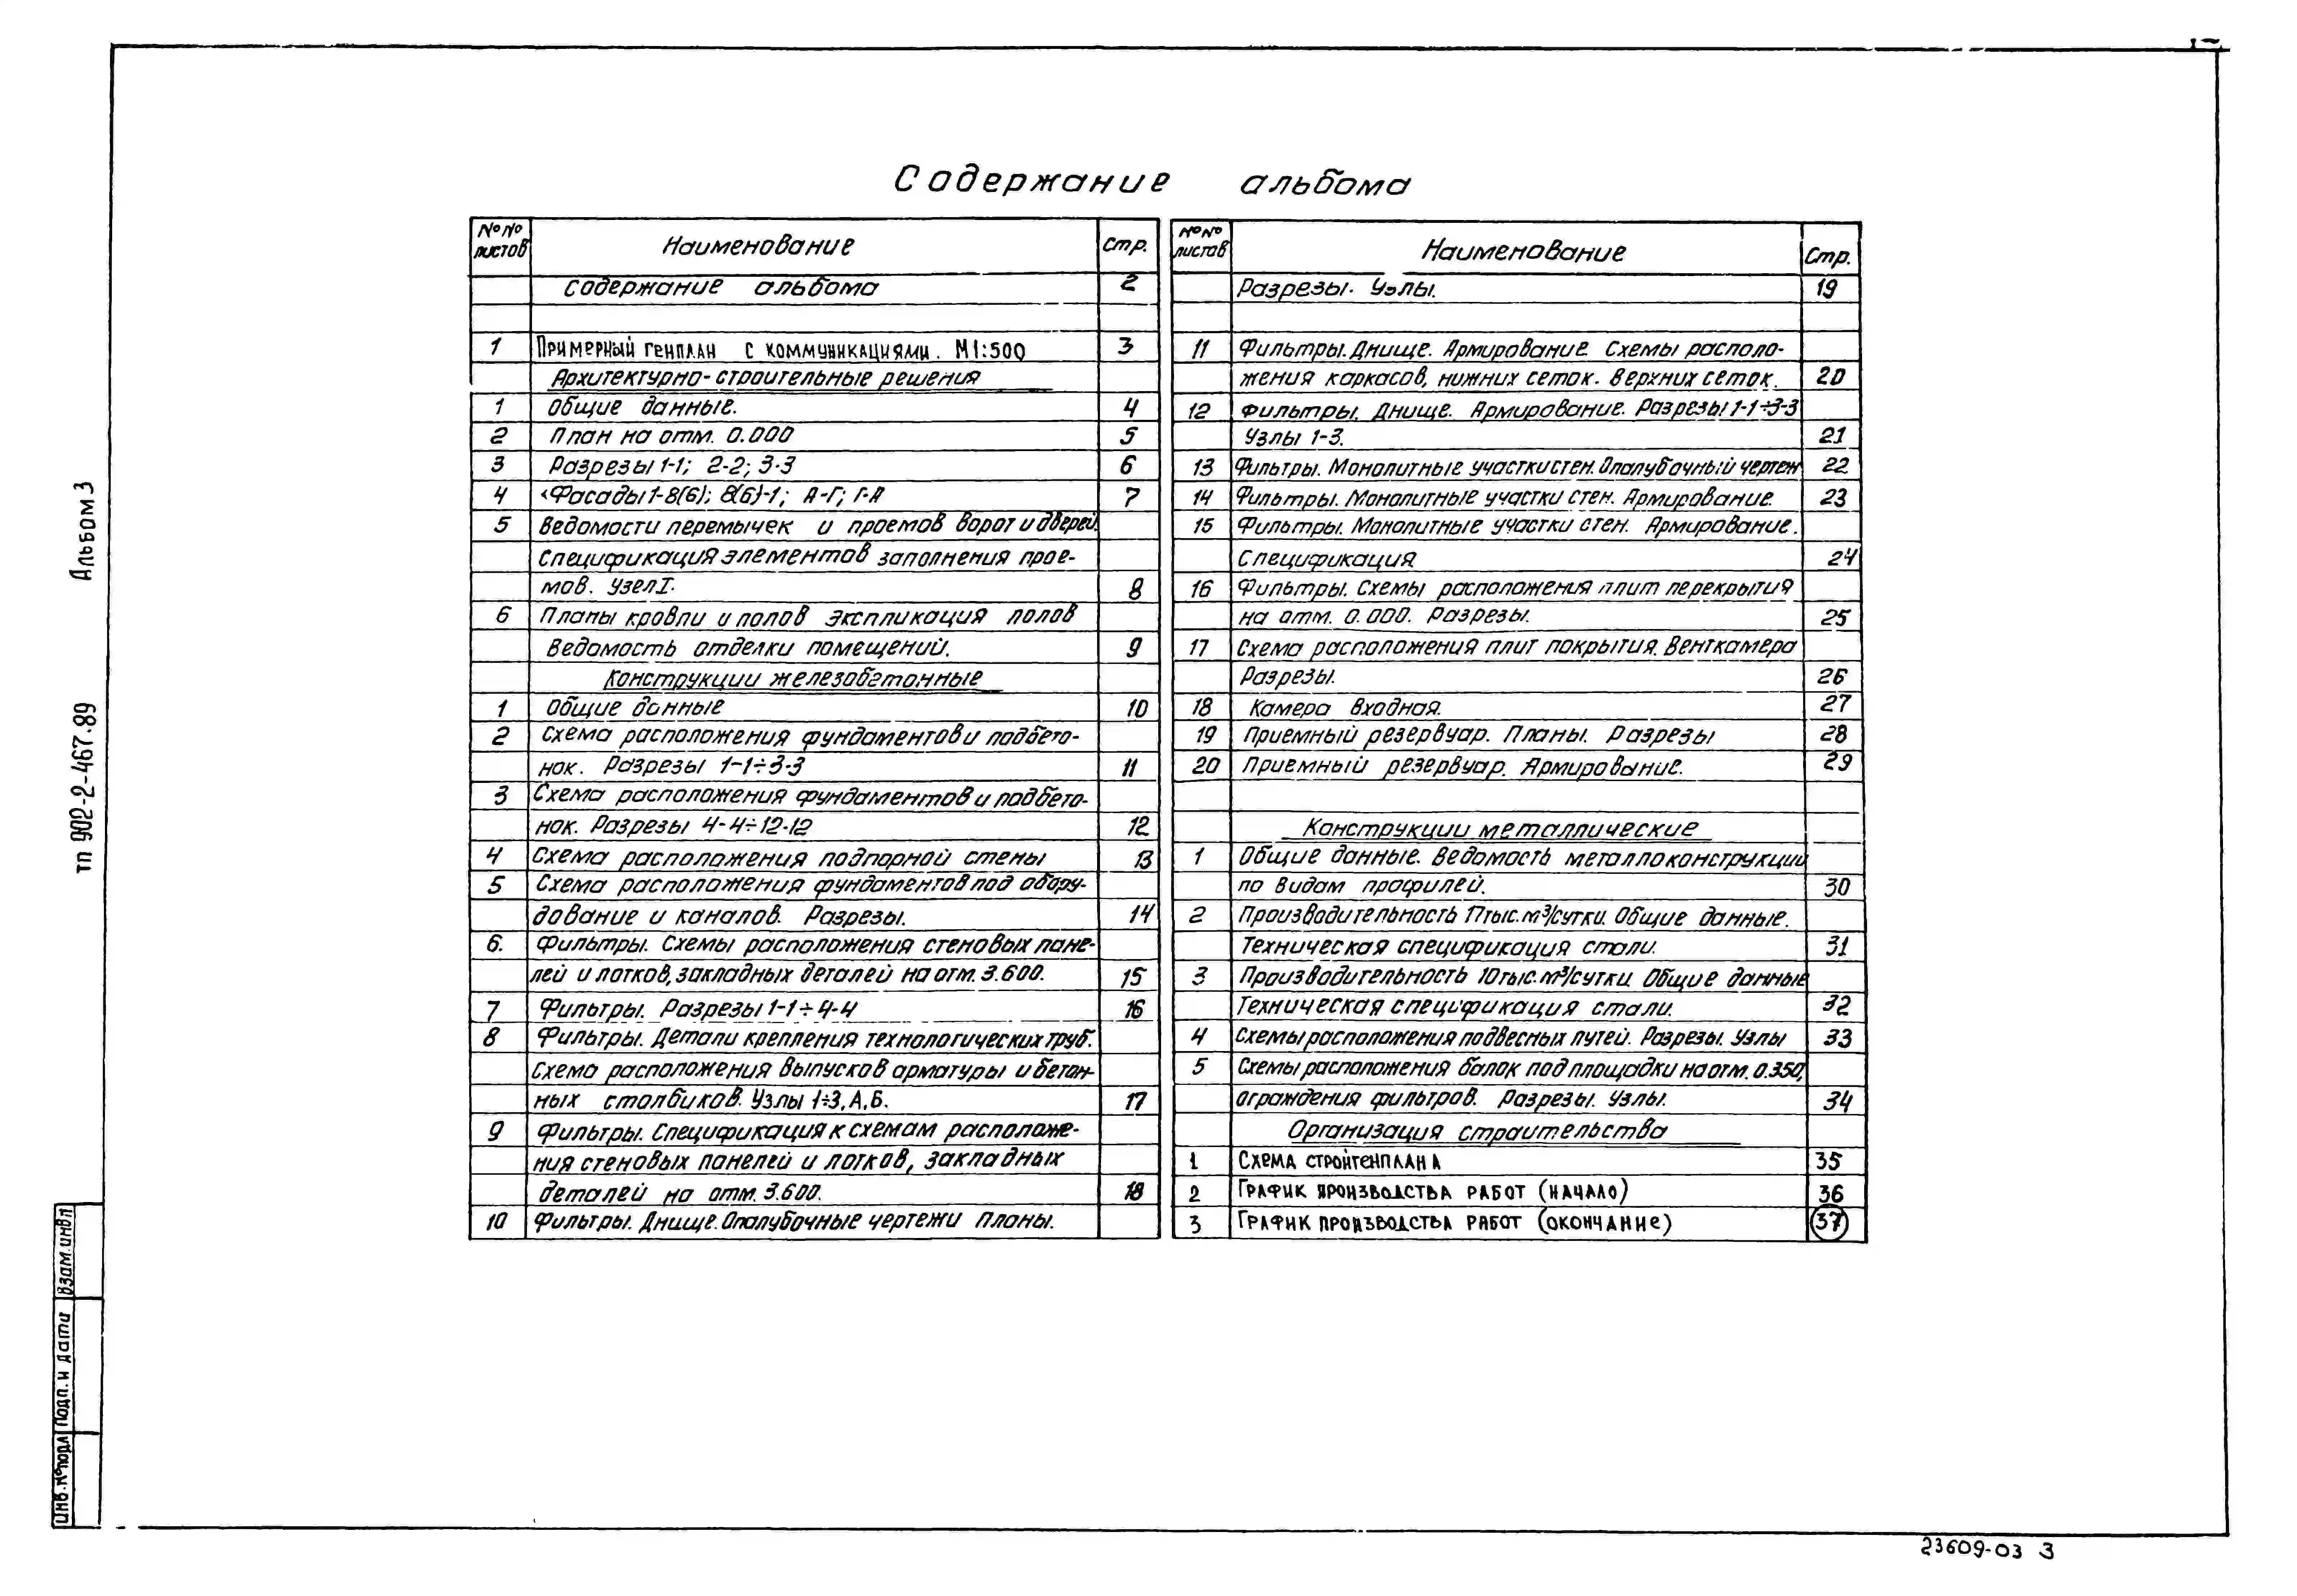 Содержание альбома
№№ листов Наименование Стр.
Содержание альбома 2
1 Примерный генплан с коммуникациями. М1:500 3
Архитектурно-строительные решения
1 Общие данные. 4
2 План на отм. 0.000 5
3 Разрезы 1-1; 2-2; 3-3 6
4 Фасады 1-8(6); 8(6)-1; А-Г; Г-А 7
5 Ведомости перемычек и проемов ворот и дверей.
Спецификация элементов заполнения прое-
мов. Узел I. 8
6 Планы кровли и полов Экспликация полов
Ведомость отделки помещений. 9
Конструкции железобетонные
1 Общие данные 10
2 Схема расположения фундаментов и подбето-
нок. Разрезы 1-1÷3-3 11
3 Схема расположения фундаментов и подбето-
нок. Разрезы 4-4÷12-12 12
4 Схема расположения подпорной стены 13
5 Схема расположения фундаментов под обору-
дование и каналов. Разрезы. 14
6. Фильтры. Схемы расположения стеновых пане-
лей и лотков, закладных деталей на отм. 3.600. 15
7 Фильтры. Разрезы 1-1÷4-4 16
8 Фильтры. Детали крепления технологических труб.
Схема расположения выпусков арматуры и бетон-
ных столбиков. Узлы 1÷3, А, Б. 17
9 Фильтры. Спецификация к схемам расположе-
ния стеновых панелей и лотков, закладных
деталей на отм. 3.600. 18
10 Фильтры. Днище. Опалубочные чертежи Планы.
№№ листов Наименование Стр.
Разрезы. Узлы. 19
11 Фильтры. Днище. Армирование. Схемы располо-
жения каркасов, нижних сеток. верхних сеток. 20
12 Фильтры. Днище. Армирование. Разрезы 1-1÷3-3
Узлы 1-3. 21
13 Фильтры. Монолитные участки стен. Опалубочный чертеж 22
14 Фильтры. Монолитные участки стен. Армирование. 23
15 Фильтры. Монолитные участки стен. Армирование.
Спецификация 24
16 Фильтры. Схемы расположения плит перекрытия
на отм. 0.000. Разрезы. 25
17 Схема расположения плит покрытия. Венткамера
Разрезы. 26
18 Камера входная. 27
19 Приемный резервуар. Планы. Разрезы 28
20 Приемный резервуар. Армирование. 29
Конструкции металлические
1 Общие данные. Ведомость металлоконструкции
по видам профилей. 30
2 Производительность 17тыс.м³/сутки. Общие данные.
Техническая спецификация стали. 31
3 Производительность 10тыс.м³/сутки. Общие данные
Техническая спецификация стали. 32
4 Схемы расположения подвесных путей. Разрезы. Узлы 33
5 Схемы расположения балок под площадки на отм. 0.350,
ограждения фильтров. Разрезы. Узлы. 34
Организация строительства
1 Схема стройгенплана 35
2 График производства работ (начало) 36
3 График производства работ (окончание) 37
Альбом 3
тп 902-2-467.89
Взам.инвл
Подп. и дата
Инв.№подл
23609-03 3